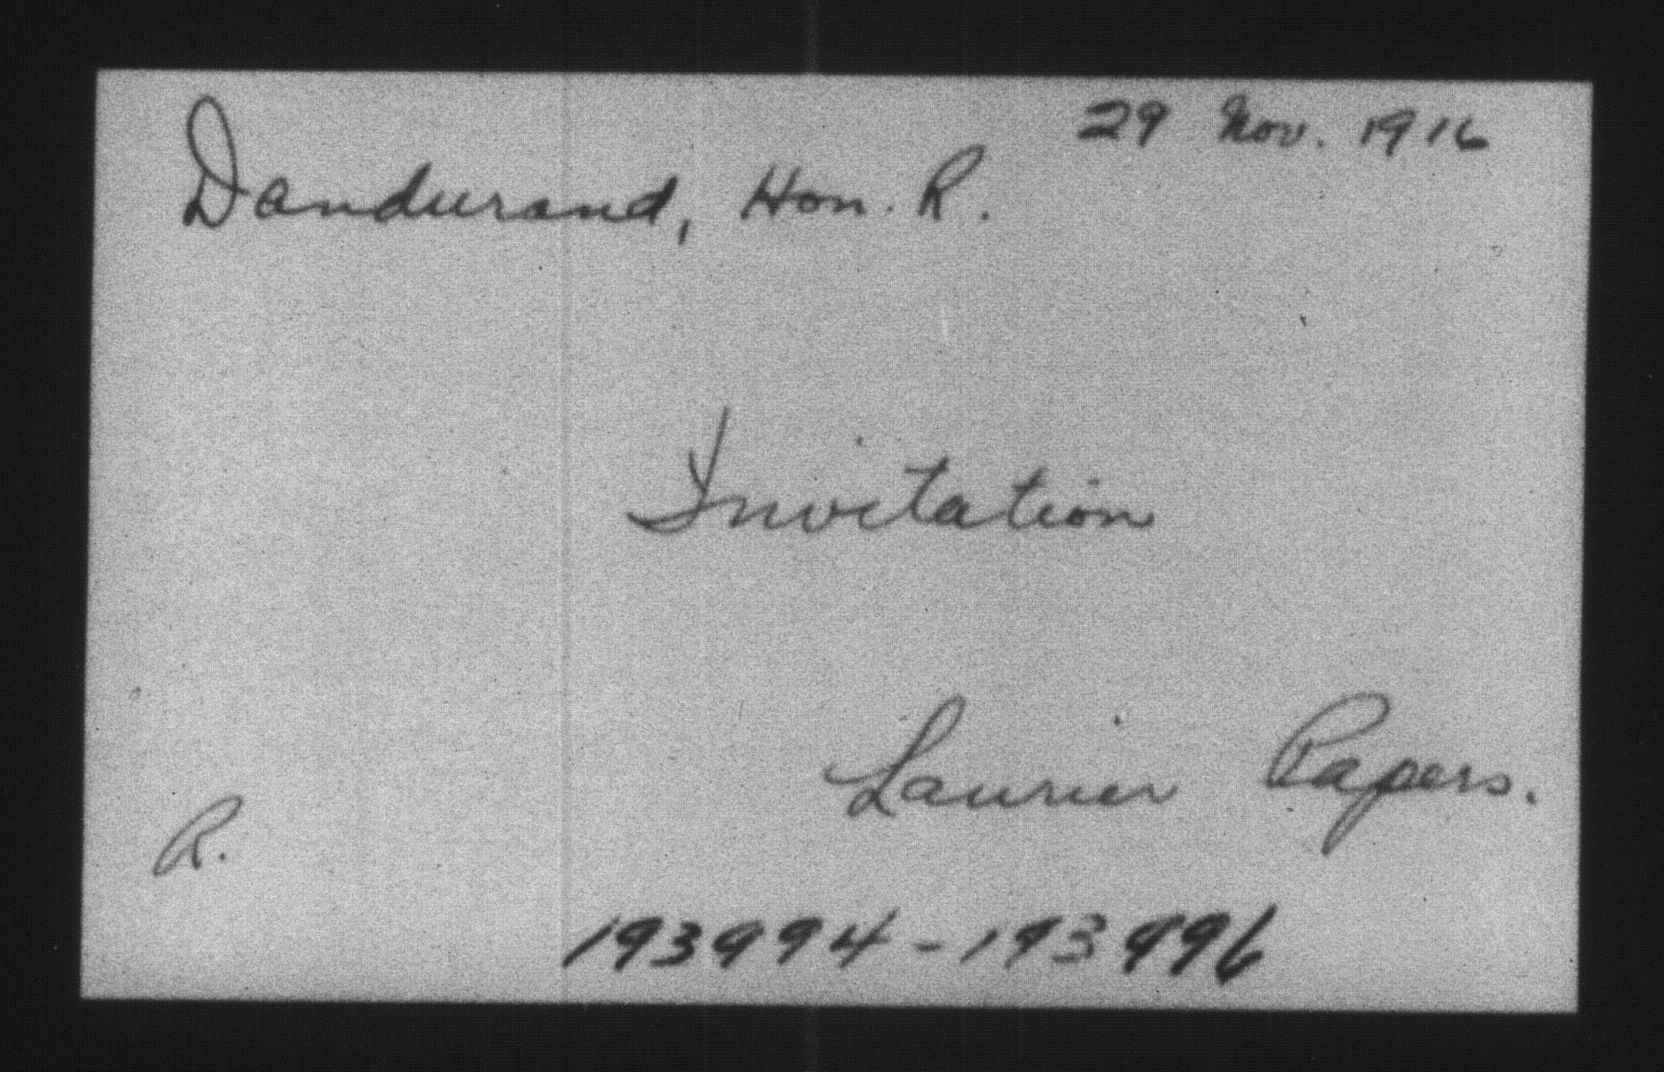 29 Nov. 1916
Dandurand, Hon. R.
Invitation
Laurier Papers.
R.
193994-193996